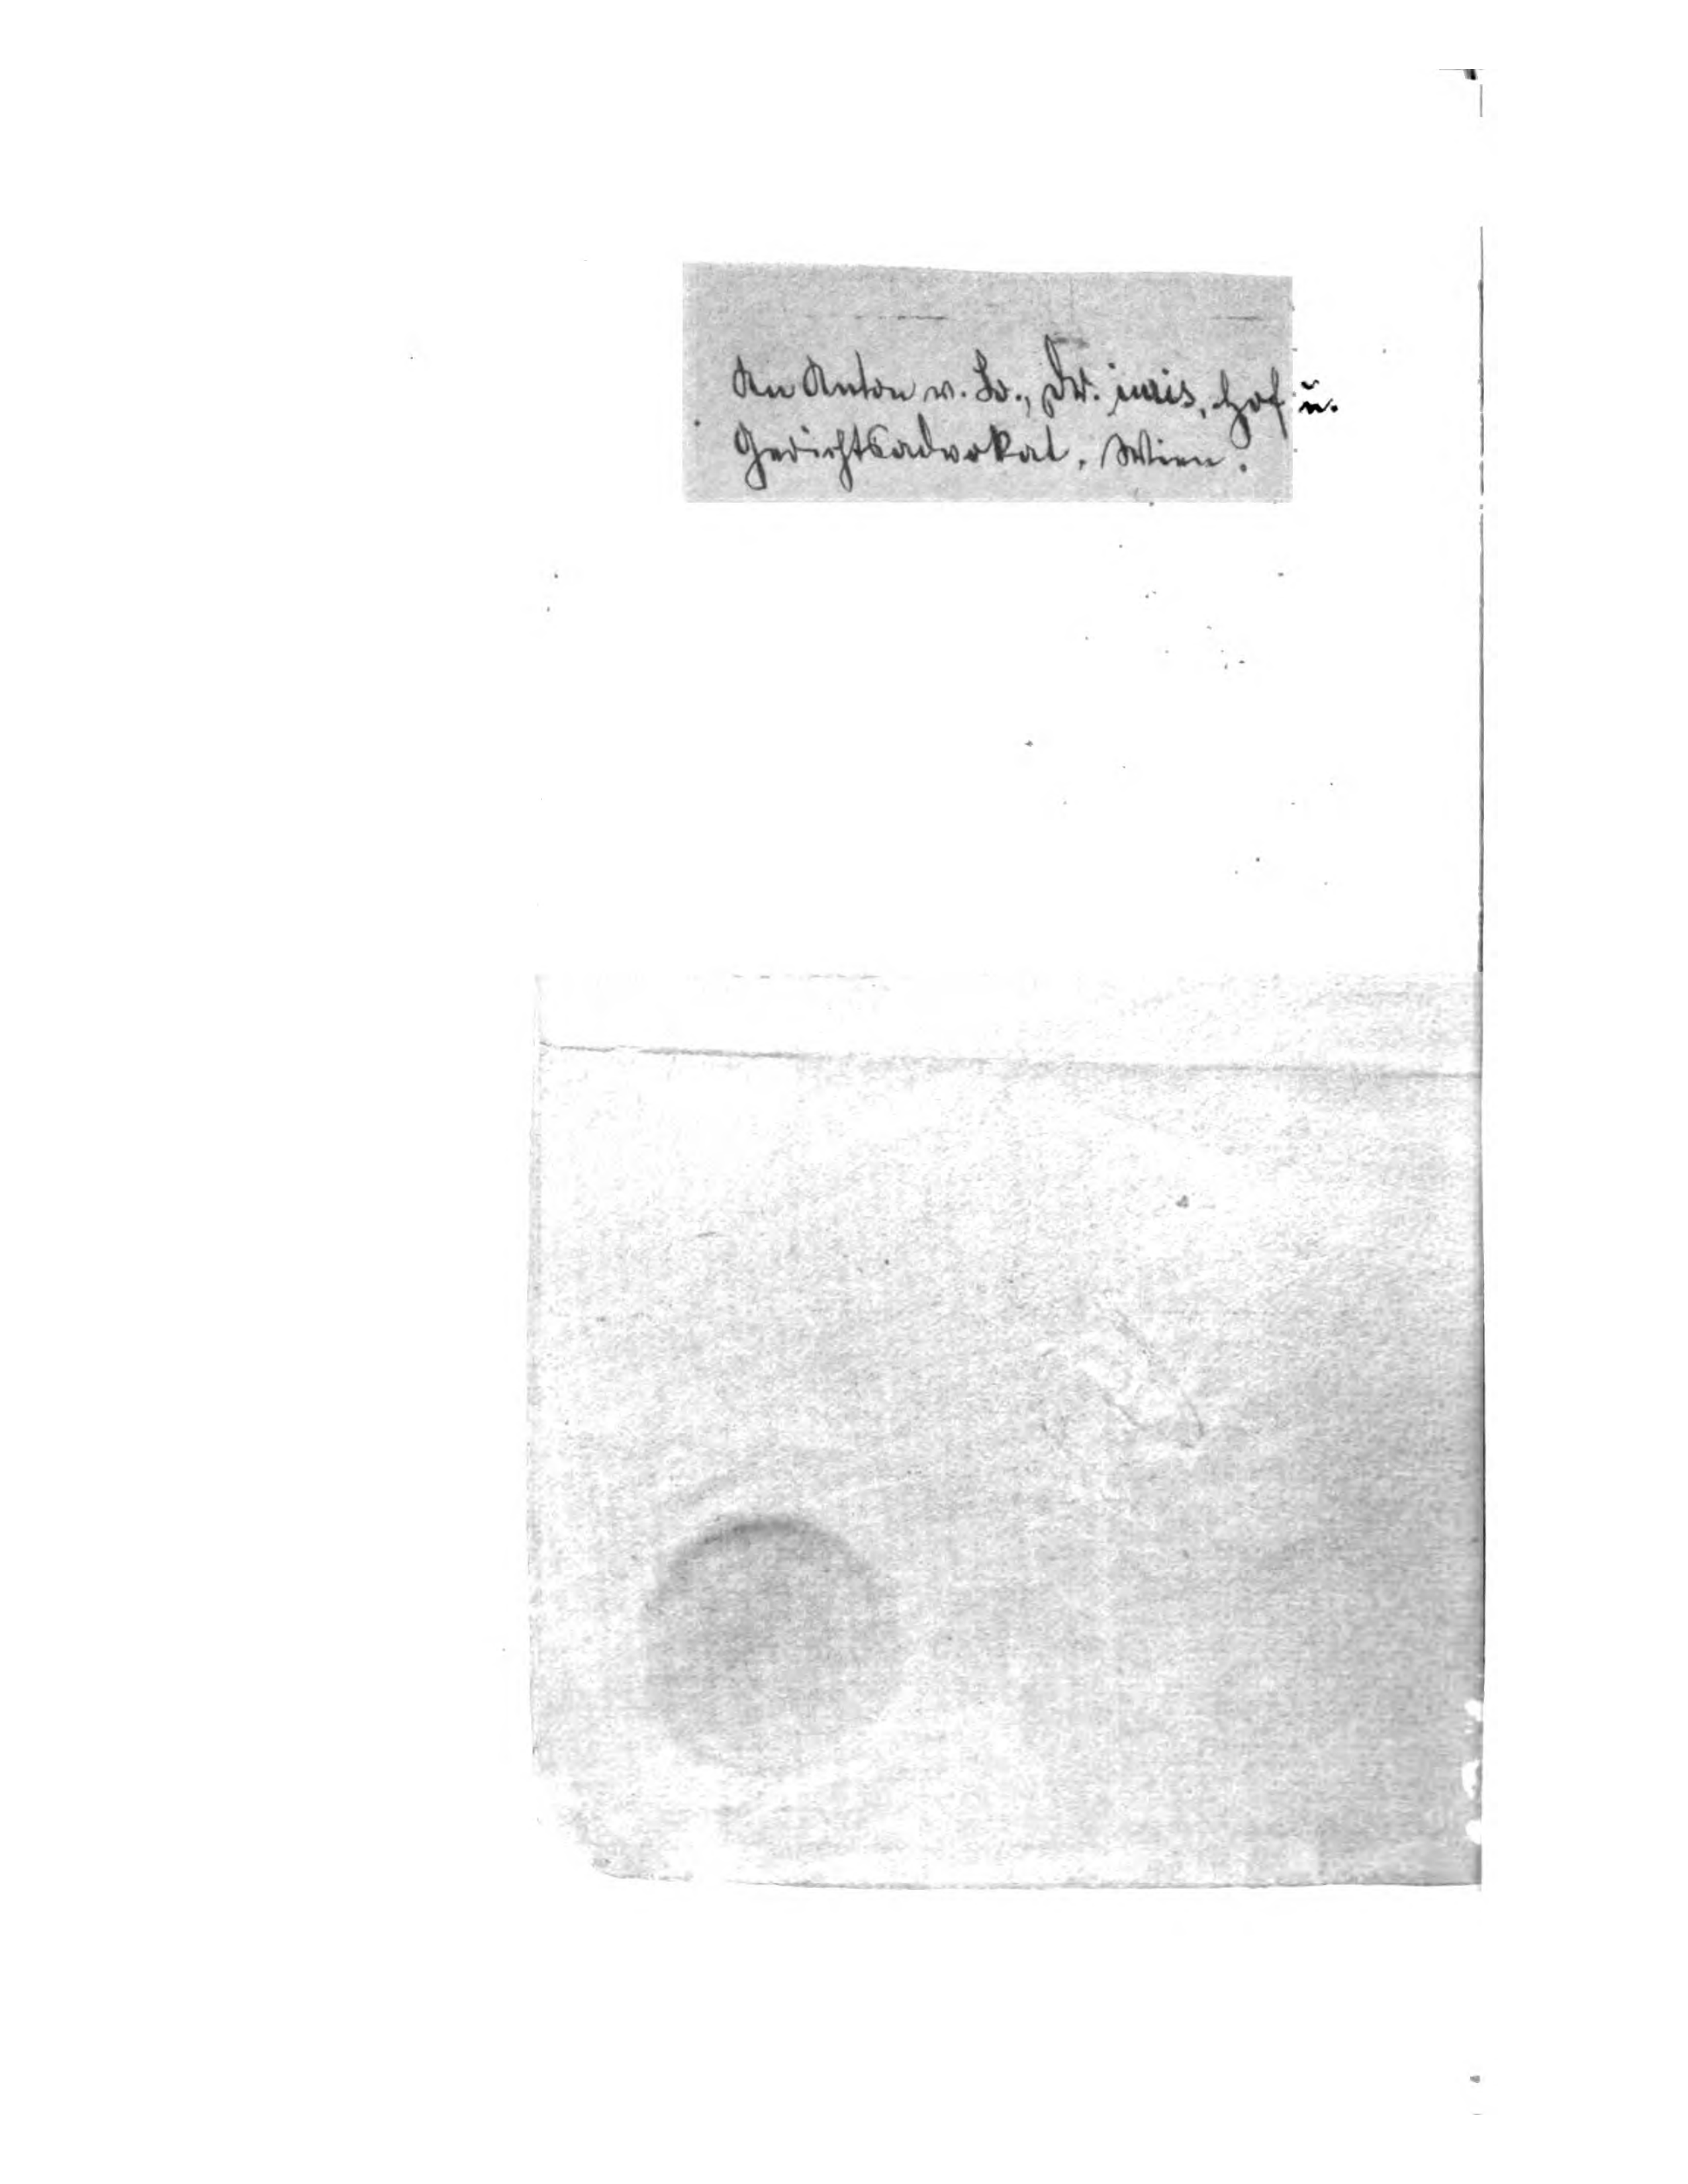 An Anton v. Lo., Dr. iuris, Hof u.
Gerichtsadvokat, Wien.